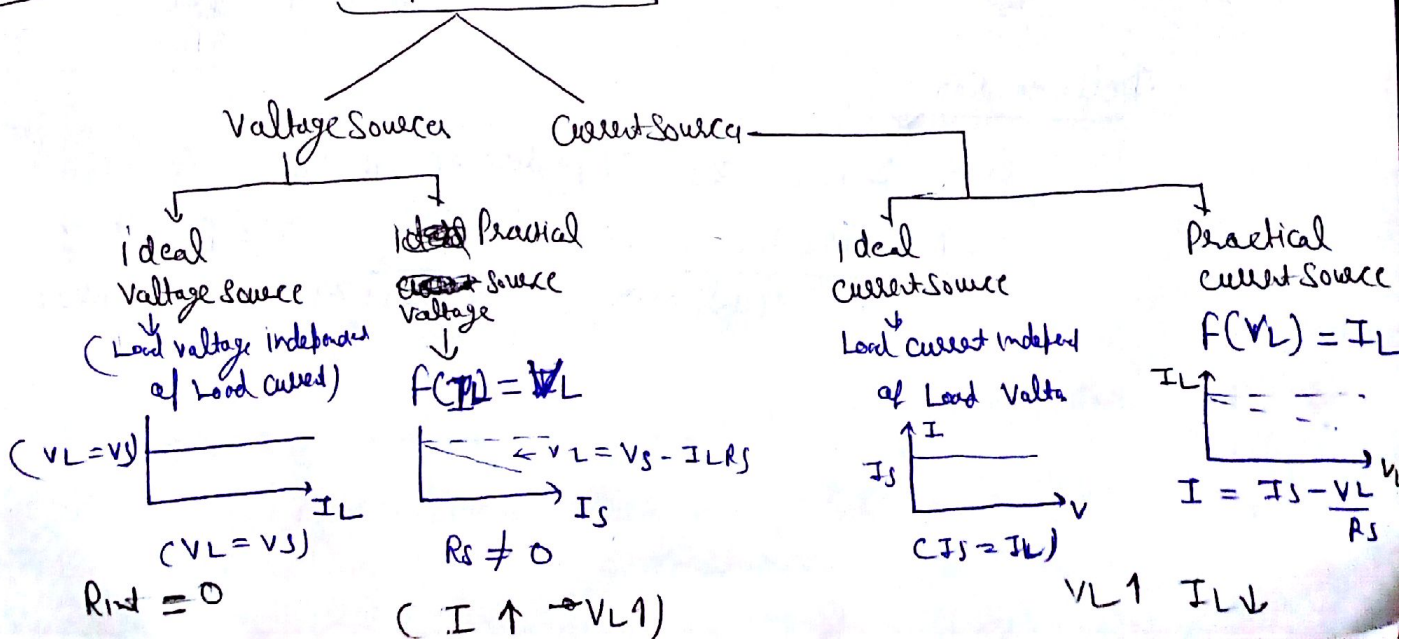 Valtage Sources
Current Source
ideal
Valtage Source
(Load valtage independent
of Load current)
(VL = VS)
IL
(VL = VS)
Rint = 0
Practial
Source
Valtage
f(IL) = VL
VL = VS - ILRS
IS
RS ≠ 0
( I ↑ → VL↑)
ideal
current Source
Load current independ
of Load Valta
I
IS
V
(IS = IL)
Practical
current Source
f(VL) = IL
IL
VL
I = IS - VL/RS
VL↑ IL↓